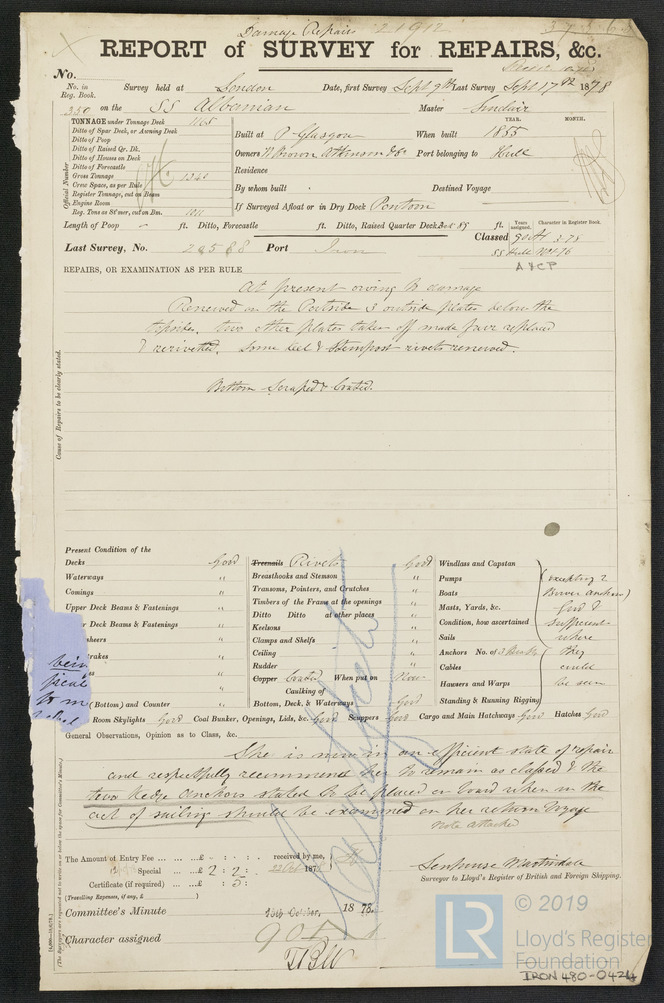 Damage Repairs
REPORT of SURVEY for REPAIRS, &c.
No.
No. in Reg. Book.
Survey held at London Date, first Survey Sept 9th Last Survey Sept 17th 1878
350 on the SS Albanian Master Sinclair
TONNAGE under Tonnage Deck 1168
Ditto of Spar Deck, or Awning Deck
Ditto of Poop
Ditto of Raised Qr. Dk.
Ditto of Houses on Deck
Ditto of Forecastle
Gross Tonnage
Crew Space, as per Rule
Register Tonnage, cut on Beam
Engine Room
Reg. Tons as St'mer, cut on Bm.
Official Number
YEAR. MONTH.
Built at P Glasgow When built 1855
Owners W Brown Atkinson &Co Port belonging to Hull
Residence
By whom built Destined Voyage
If Surveyed Afloat or in Dry Dock Pontoon
Length of Poop ft. Ditto, Forecastle ft. Ditto, Raised Quarter Deck ft.
Years assigned. Character in Register Book.
Classed 90 A1 3.78
SS Hull No1-76
A & C P
Last Survey, No. Port Iron
REPAIRS, OR EXAMINATION AS PER RULE
At present owing to damage
Renewed on the Portside 3 outside plates below the
topside, two other plates taken off made fair replaced
& rerivetted. Some keel & Stempost rivets renewed.
Bottom Scraped & Coated.
Cause of Repairs to be clearly stated.
Present Condition of the
Decks Good
Waterways "
Comings "
Upper Deck Beams & Fastenings "
Deck Beams & Fastenings "
(Bottom) and Counter "
Treenails Rivets Good
Breasthooks and Stemson "
Transoms, Pointers, and Crutches "
Timbers of the Frame at the openings "
Ditto Ditto at other places "
Keelsons "
Clamps and Shelfs "
Ceiling "
Rudder "
Copper Coated When put on Now
Caulking of Bottom, Deck, & Waterways Good
Windlass and Capstan
Pumps
Boats
Masts, Yards, &c.
Condition, how ascertained
Sails
Anchors No. of
Cables
Hausers and Warps
Standing & Running Rigging
(excepting 2
Bower anchors)
Good &
sufficient
where
they
could
be seen
Room Skylights Good Coal Bunker, Openings, Lids, &c. Good Scuppers Good Cargo and Main Hatchways Good Hatches Good
General Observations, Opinion as to Class, &c.
She is now in an efficient state of repair
and respectfully recommend her to remain as classed & the
two Kedge anchors stated to be placed on board when in the
act of sailing should be examined on her return voyage
Note attached
The Amount of Entry Fee ... ... £ - : - : - received by me,
Special ... ... £ 2 : 2 : -
Certificate (if required) ... £ - : 5 :
(Travelling Expenses, if any, £ )
Senhouse Martindale
Surveyor to Lloyd's Register of British and Foreign Shipping.
Committee's Minute 15th October, 1878.
Character assigned 90 A1
© 2019
LR
Lloyd's Register
Foundation
IRON 480-0424